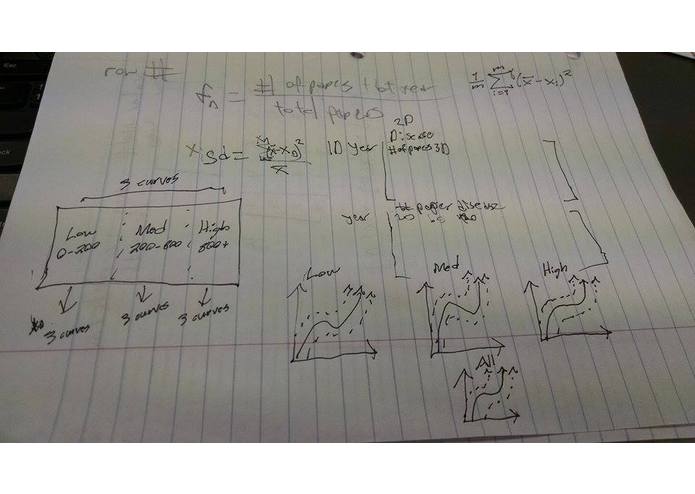 row #
= # of papers that year
total papers
1/m m∑i=1 (x̄ - xi)²
Sd =
x̄
2D
Disease
1D Year
# of papers 3D
# papier disease
year
3 curves
Low
0-200
Med
200-800
High
800+
3 curves
3 curves
3 curves
Low
Med
High
All